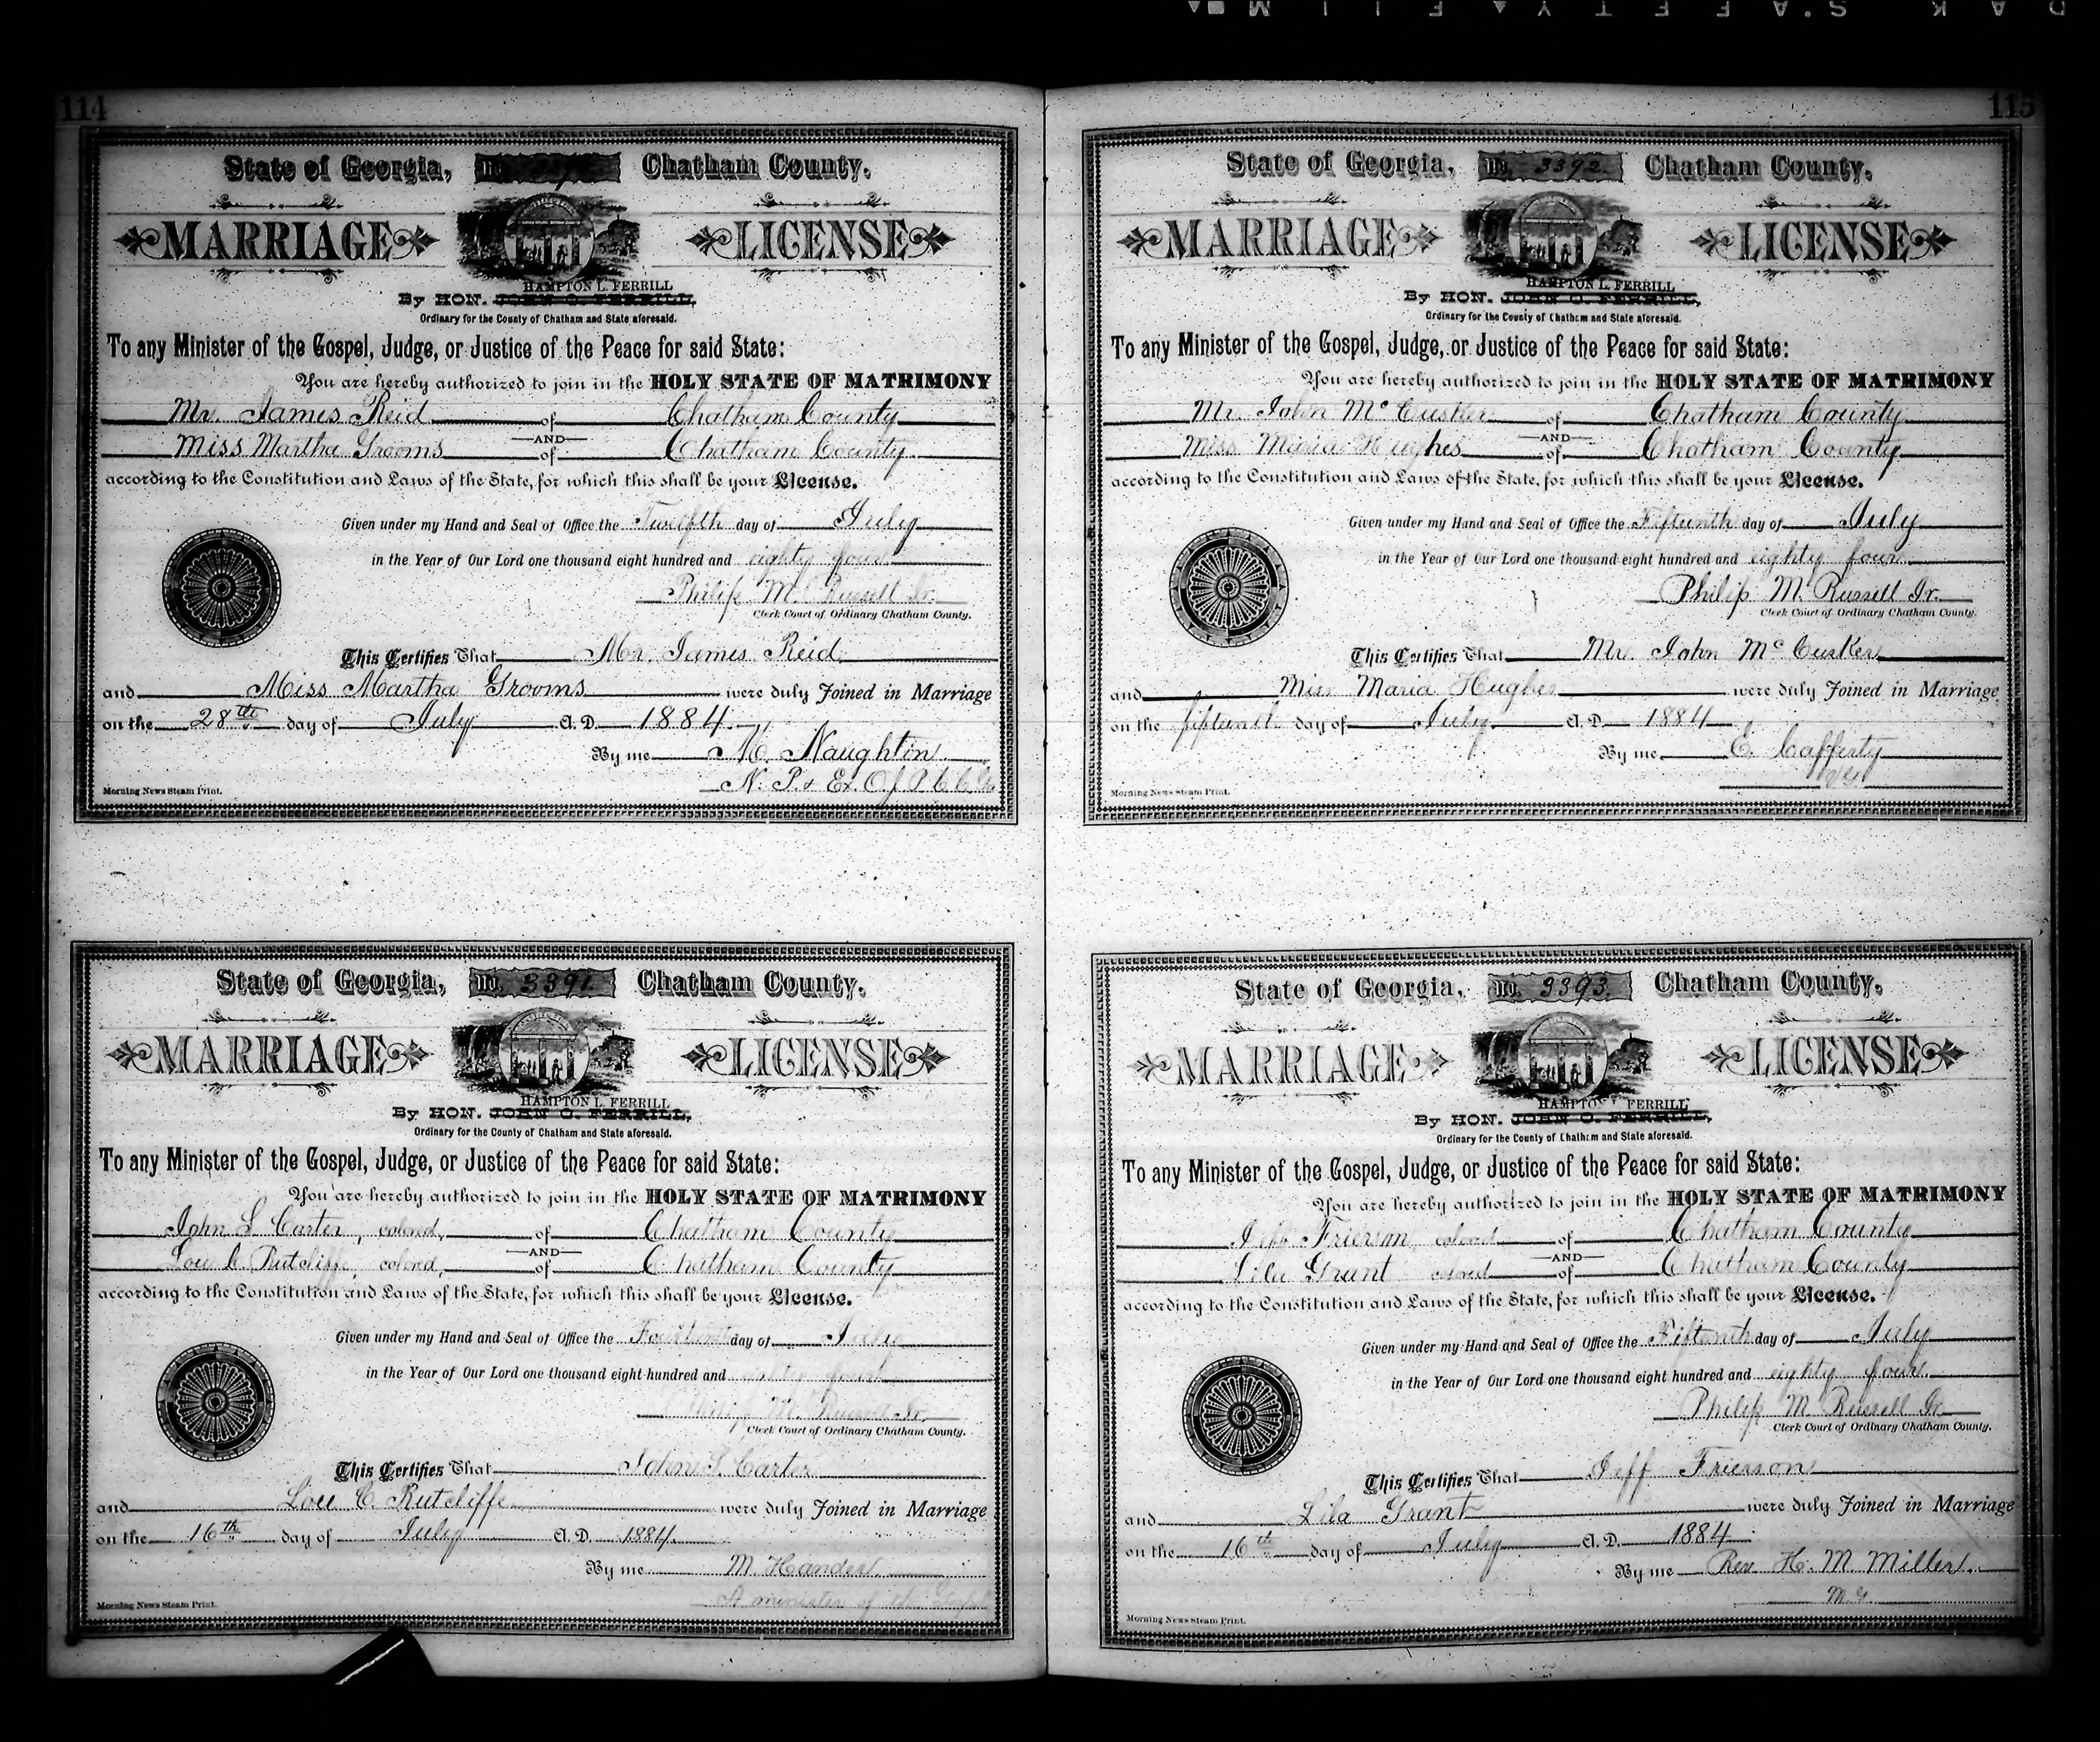 114
State of Georgia, No. Chatham County.
MARRIAGE LICENSE
HAMPTON L. FERRILL
By HON. JOHN O. FERRILL,
Ordinary for the County of Chatham and State aforesaid.
To any Minister of the Gospel, Judge, or Justice of the Peace for said State:
You are hereby authorized to join in the HOLY STATE OF MATRIMONY
Mr. James Reid of Chatham County
AND
Miss Martha Grooms of Chatham County
according to the Constitution and Laws of the State, for which this shall be your License.
Given under my Hand and Seal of Office the Twelfth day of July
in the Year of Our Lord one thousand eight hundred and eighty four
Philip M. Russell Jr.
Clerk Court of Ordinary Chatham County.
This Certifies That Mr. James Reid
and Miss Martha Grooms were duly Joined in Marriage
on the 28th day of July A. D. 1884
By me M. Naughtin
N. P. & Ex. Of J P C C Ga
Morning News Steam Print.
State of Georgia, No. 3391. Chatham County.
MARRIAGE LICENSE
HAMPTON L. FERRILL
By HON. JOHN O. FERRILL,
Ordinary for the County of Chatham and State aforesaid.
To any Minister of the Gospel, Judge, or Justice of the Peace for said State:
You are hereby authorized to join in the HOLY STATE OF MATRIMONY
John S. Carter, colored, of Chatham County
AND
Lou C Rutcliffe, colored, of Chatham County
according to the Constitution and Laws of the State, for which this shall be your License.
Given under my Hand and Seal of Office the day of July
in the Year of Our Lord one thousand eight hundred and eighty four
Philip M. Russell Jr.
Clerk Court of Ordinary Chatham County.
This Certifies That John S. Carter
and Lou C. Rutcliffe were duly Joined in Marriage
on the 16th day of July A. D. 1884
By me M. Hander
A minister of the Gospel
Morning News Steam Print.
115
State of Georgia, No. 3392. Chatham County.
MARRIAGE LICENSE
HAMPTON L. FERRILL
By HON. JOHN O. FERRILL,
Ordinary for the County of Chatham and State aforesaid.
To any Minister of the Gospel, Judge, or Justice of the Peace for said State:
You are hereby authorized to join in the HOLY STATE OF MATRIMONY
Mr. John Mc Cusker of Chatham County
AND
Miss Maria Hughes of Chatham County
according to the Constitution and Laws of the State, for which this shall be your License.
Given under my Hand and Seal of Office the Fifteenth day of July
in the Year of Our Lord one thousand eight hundred and eighty four
Philip M. Russell Jr.
Clerk Court of Ordinary Chatham County.
This Certifies That Mr. John Mc Cusker
and Miss Maria Hughes were duly Joined in Marriage
on the fifteenth day of July A. D. 1884
By me E. Cafferty
Morning News Steam Print.
State of Georgia, No. 3393. Chatham County.
MARRIAGE LICENSE
HAMPTON L. FERRILL
By HON. JOHN O. FERRILL,
Ordinary for the County of Chatham and State aforesaid.
To any Minister of the Gospel, Judge, or Justice of the Peace for said State:
You are hereby authorized to join in the HOLY STATE OF MATRIMONY
Jeff Frierson colored of Chatham County
AND
Lila Grant colored of Chatham County
according to the Constitution and Laws of the State, for which this shall be your License.
Given under my Hand and Seal of Office the Fifteenth day of July
in the Year of Our Lord one thousand eight hundred and eighty four
Philip M. Russell Jr.
Clerk Court of Ordinary Chatham County.
This Certifies That Jeff Frierson
and Lila Grant were duly Joined in Marriage
on the 16th day of July A. D. 1884
By me Rev H. M. Miller
M. G.
Morning News Steam Print.